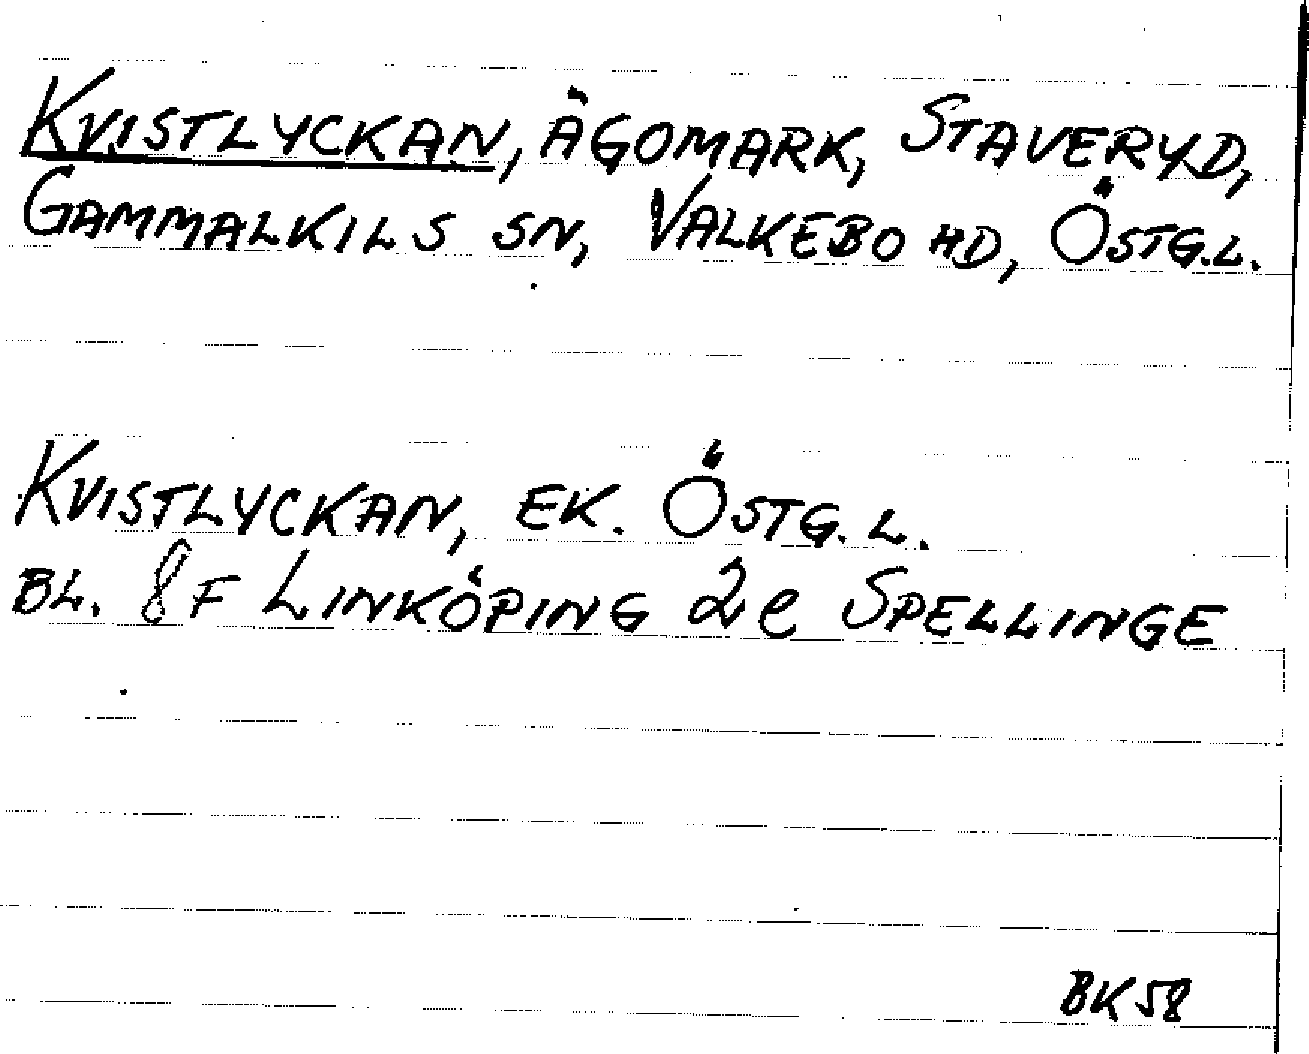 KVISTLYCKAN, ÄGOMARK, STAVERYD,
GAMMALKILS SN, VALKEBO HD, ÖSTG.L.
KVISTLYCKAN, EK. ÖSTG.L.
BL. 8F LINKÖPING 2e SPELLINGE
BK58